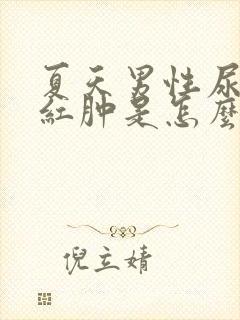 夏天男性尿
紅肿是怎麼
倪立婧